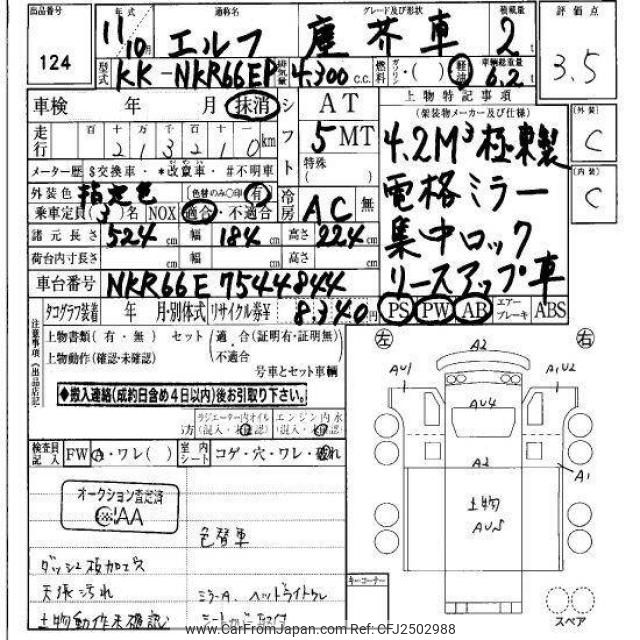 出品番号
124
年式
11/10月
通称名
エルフ
グレード及び形状
塵芥車
積載量
2 t
評価点
3.5
型式
KK-NKR66EP
排気量
4,300 c.c.
燃料
ガソリン・( )・軽油
車輌総重量
6.2 t
車検 年 月 抹消
シフト
AT
5 MT
特殊
( )
上物特記事項
(架装物メーカー及び仕様)
4.2M³極東製
電格ミラー
集中ロック
リースアップ車
[外装]
C
[内装]
C
走行
百 十 万 千 百 十
2 1 3 2 1 0 km
メーター歴 $交換車・*改ざん車・#不明車
外装色 指定色 (色替のみ○印) 有
冷房
AC
無
乗車定員(3)名 NOX 適合・不適合
諸元長さ 524 cm 幅 184 cm 高さ 224 cm
荷台内寸長さ cm 幅 cm 高さ cm
車台番号 NKR66E 7544844
タコグラフ装着 年 月・別体式 リサイクル券¥ 8,340円
PS PW AB エアーブレーキ ABS
注意事項(出品店記入)
上物書類(有・無) セット 適合(証明有・証明無)
上物動作(確認・未確認) 不適合
号車とセット車輌
◆搬入連絡(成約日含め4日以内)後お引取り下さい。
ラジエーター内オイル
エンジン内水
検査員記入
FW A・ワレ( )
室内シート
コゲ・穴・ワレ・破れ
オークション査定済
CIAA
色替車
ダッシュ板加工穴
天張汚れ
ミラーA、ヘッドライトワレ
上物動作未確認
左
右
A2
AU1
A1U2
AU4
A2
A1
上物
AU5
キーコーナー
スペア
www.CarFromJapan.com Ref: CFJ2502988